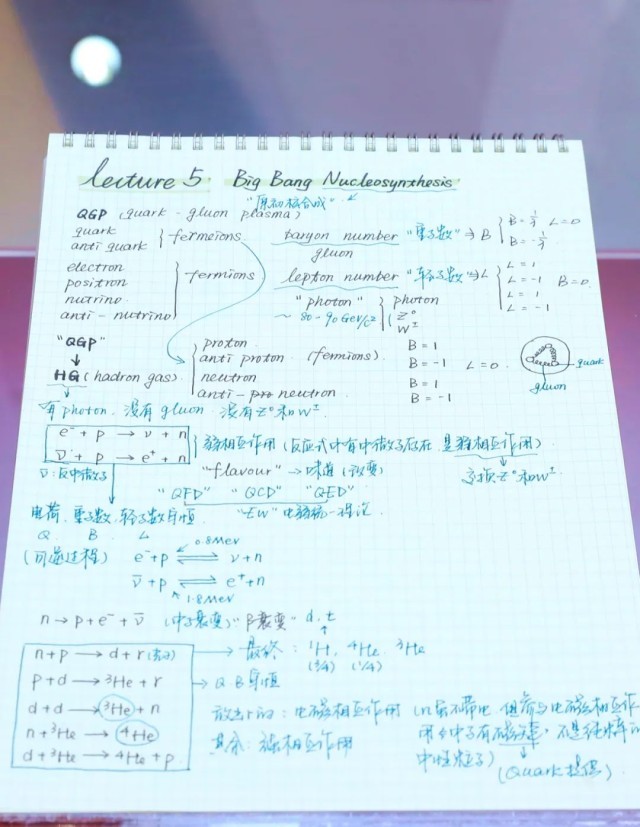 lecture 5. Big Bang Nucleosynthesis
"原初核合成"
QGP (quark - gluon plasma)
quark
anti quark } fermeions
baryon number "重子数" ⇒ B { B = 1/3 L = 0
B = -1/3
gluon
electron
positron
nutrino
anti - nutrino } fermions
lepton number "轻子数" ⇒ L { L = 1
L = -1
L = 1
L = -1
B = 0.
"photon" { photon
Z⁰
W±
~ 80 - 90 GeV/c²
"QGP"
↓
HG (hadron gas)
proton B = 1
anti proton (fermions) B = -1 L = 0
neutron B = 1
anti - neutron B = -1
quark
gluon
有 photon, 没有 gluon 没有 Z⁰ 和 W±
e⁻ + p → ν + n
ν̄ + p → e⁺ + n
弱相互作用 (反应式中有中微子存在 是弱相互作用)
ν̄ : 反中微子
"flavour" → 味道 (改变)
交换 Z⁰ 和 W±
"QFD" "QCD" "QED"
电荷, 重子数, 轻子数守恒
"EW" 电弱统一理论
Q B L
(可逆过程) e⁻ + p ⇌ ν + n
0.8 MeV
ν̄ + p ⇌ e⁺ + n
1.8 MeV
n → p + e⁻ + ν̄ (中子衰变) "β衰变" d, t
n + p → d + r (光子)
p + d → ³He + r
d + d → ³He + n
n + ³He → ⁴He
d + ³He → ⁴He + p
→ 最终: ¹H, ⁴He ³He
(3/4) (1/4)
→ Q B 守恒
放出 r 的: 电磁相互作用 (n 虽不带电, 但参与电磁相互作
用 中子有磁矩, 不是纯粹的
中性粒子)
其余: 强相互作用
(Quark 提供)